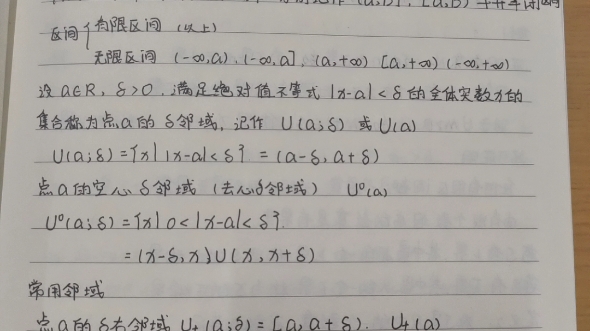 区间{有限区间 (以上)
无限区间 (-∞,a), (-∞,a], (a,+∞) [a,+∞) (-∞,+∞)
设 a∈R, δ>0, 满足绝对值不等式 |x-a|<δ 的全体实数x的
集合称为点a的δ邻域, 记作 U(a;δ) 或 U(a)
U(a;δ)={x| |x-a|<δ} = (a-δ, a+δ)
点a的空心δ邻域 (去心δ邻域) U°(a)
U°(a;δ)={x| 0<|x-a|<δ}.
=(x-δ,x)U(x,x+δ)
常用邻域
点a的δ右邻域 U+(a;δ)=[a, a+δ). U+(a)